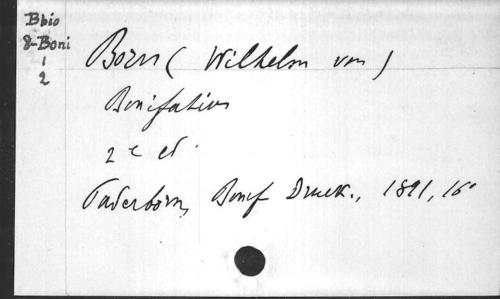 Bbio
8-Boni
1
2
Born (Wilhelm von)
Bonifatius
2e ed.
Paderborn, Bonif Druck., 1891, 16°